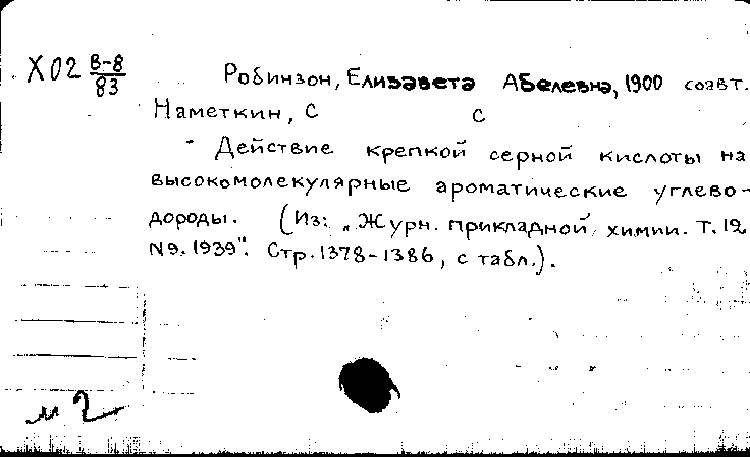 Х02 В-8/83
Робинзон, Елизавета Абелевна, 1900 соавт.
Наметкин, С С
- Действие крепкой серной кислоты на
высокомолекулярные ароматические углево-
дороды. (Из: „Журн. прикладной химии. Т. 12
N 9. 1939". Стр. 1378-1386, с табл.).
м 2